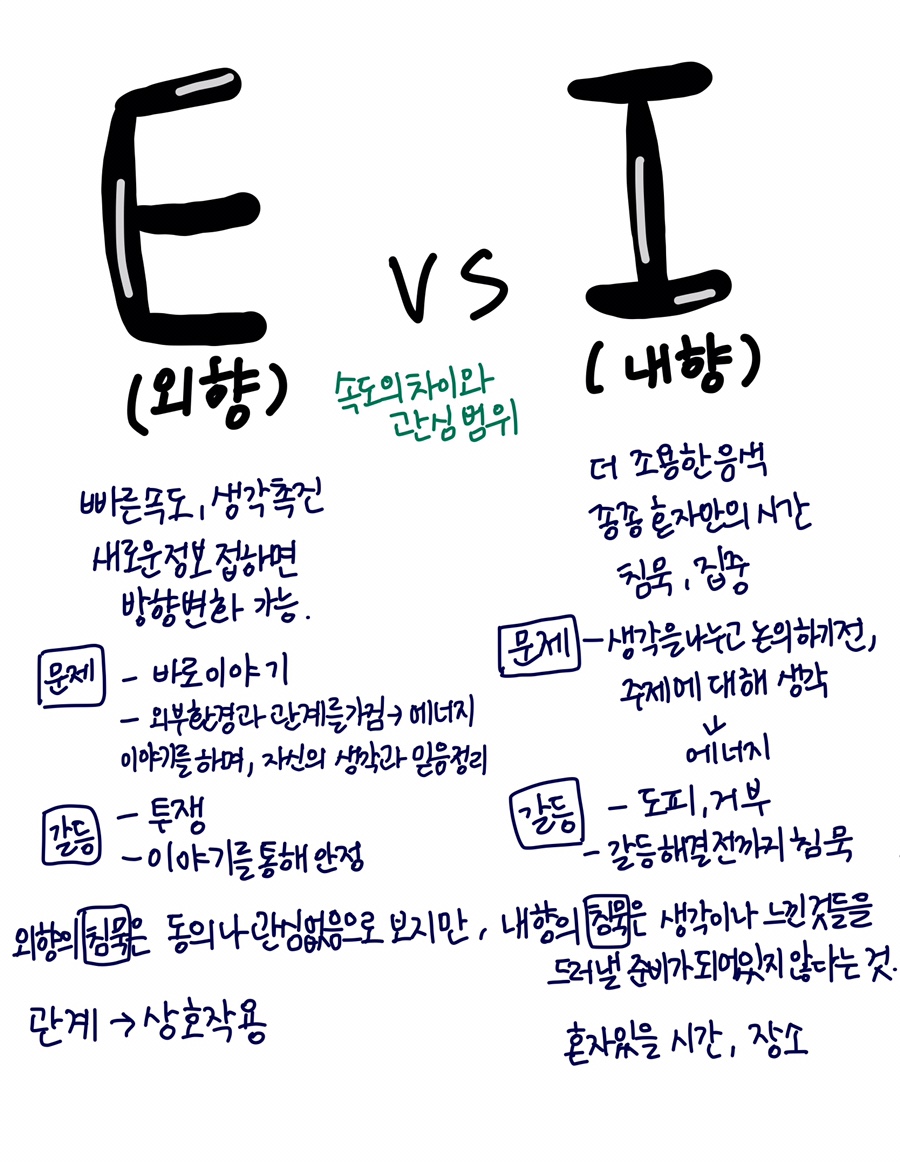 E vs I
(외향)
(내향)
속도의 차이와
관심 범위
빠른속도, 생각촉진
새로운정보 접하면
방향변화 가능.
문제 - 바로이야기
- 외부환경과 관계를가짐→에너지
이야기를하며, 자신의 생각과 믿음정리
갈등 - 투쟁
- 이야기를통해 안정
더 조용한 음색
종종 혼자만의 시간
침묵, 집중
문제 - 생각을나누고 논의하기전,
주제에 대해 생각
↓
에너지
갈등 - 도피, 거부
- 갈등해결전까지 침묵
외향의 침묵은 동의나 관심없음으로 보지만, 내향의 침묵은 생각이나 느낀것들을
드러낼 준비가되어있지 않다는 것.
관계 → 상호작용
혼자있을 시간, 장소